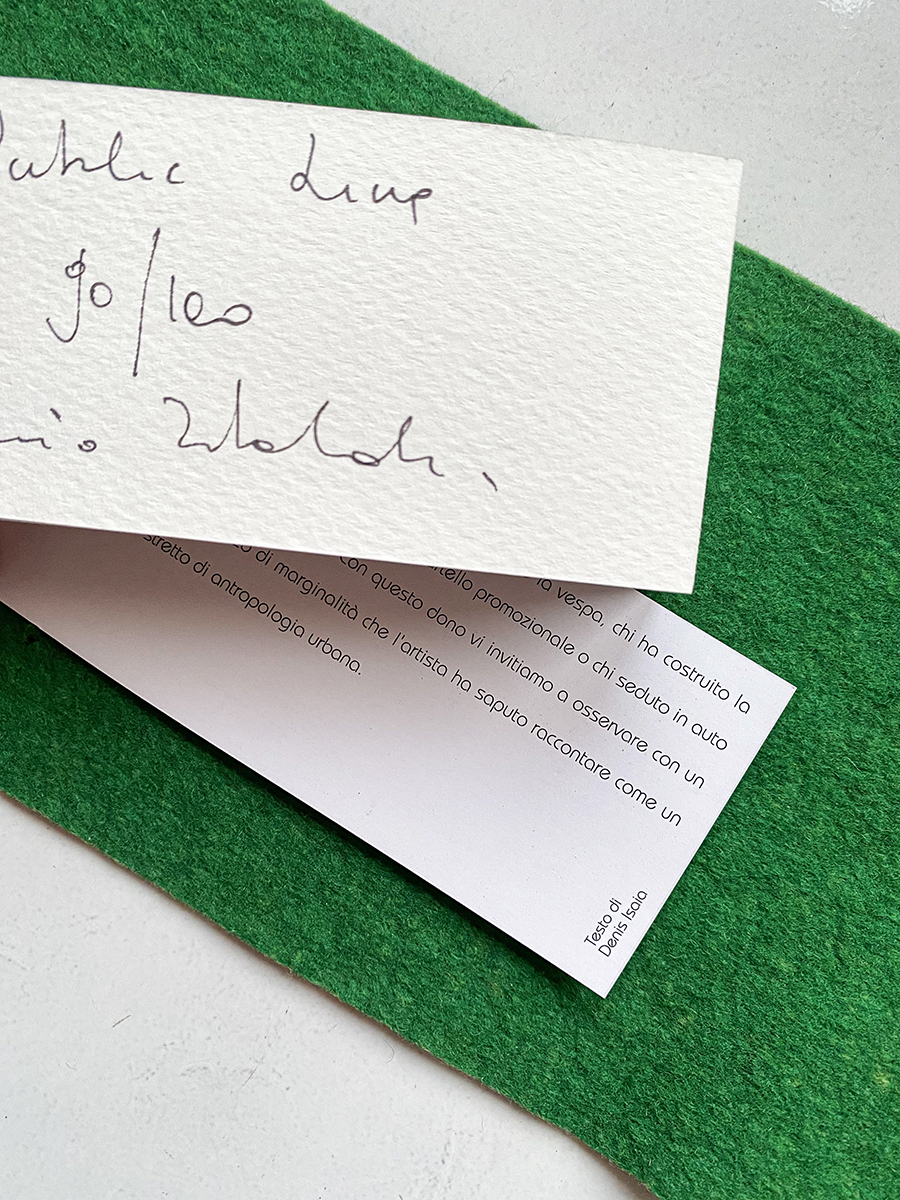 Public Live
90/100
la vespa, chi ha costruito la
promozionale o chi seduto in auto
con questo dono vi invitiamo a osservare con un
di marginalità che l'artista ha saputo raccontare come un
stretto di antropologia urbana.
Testo di
Denis Isaia